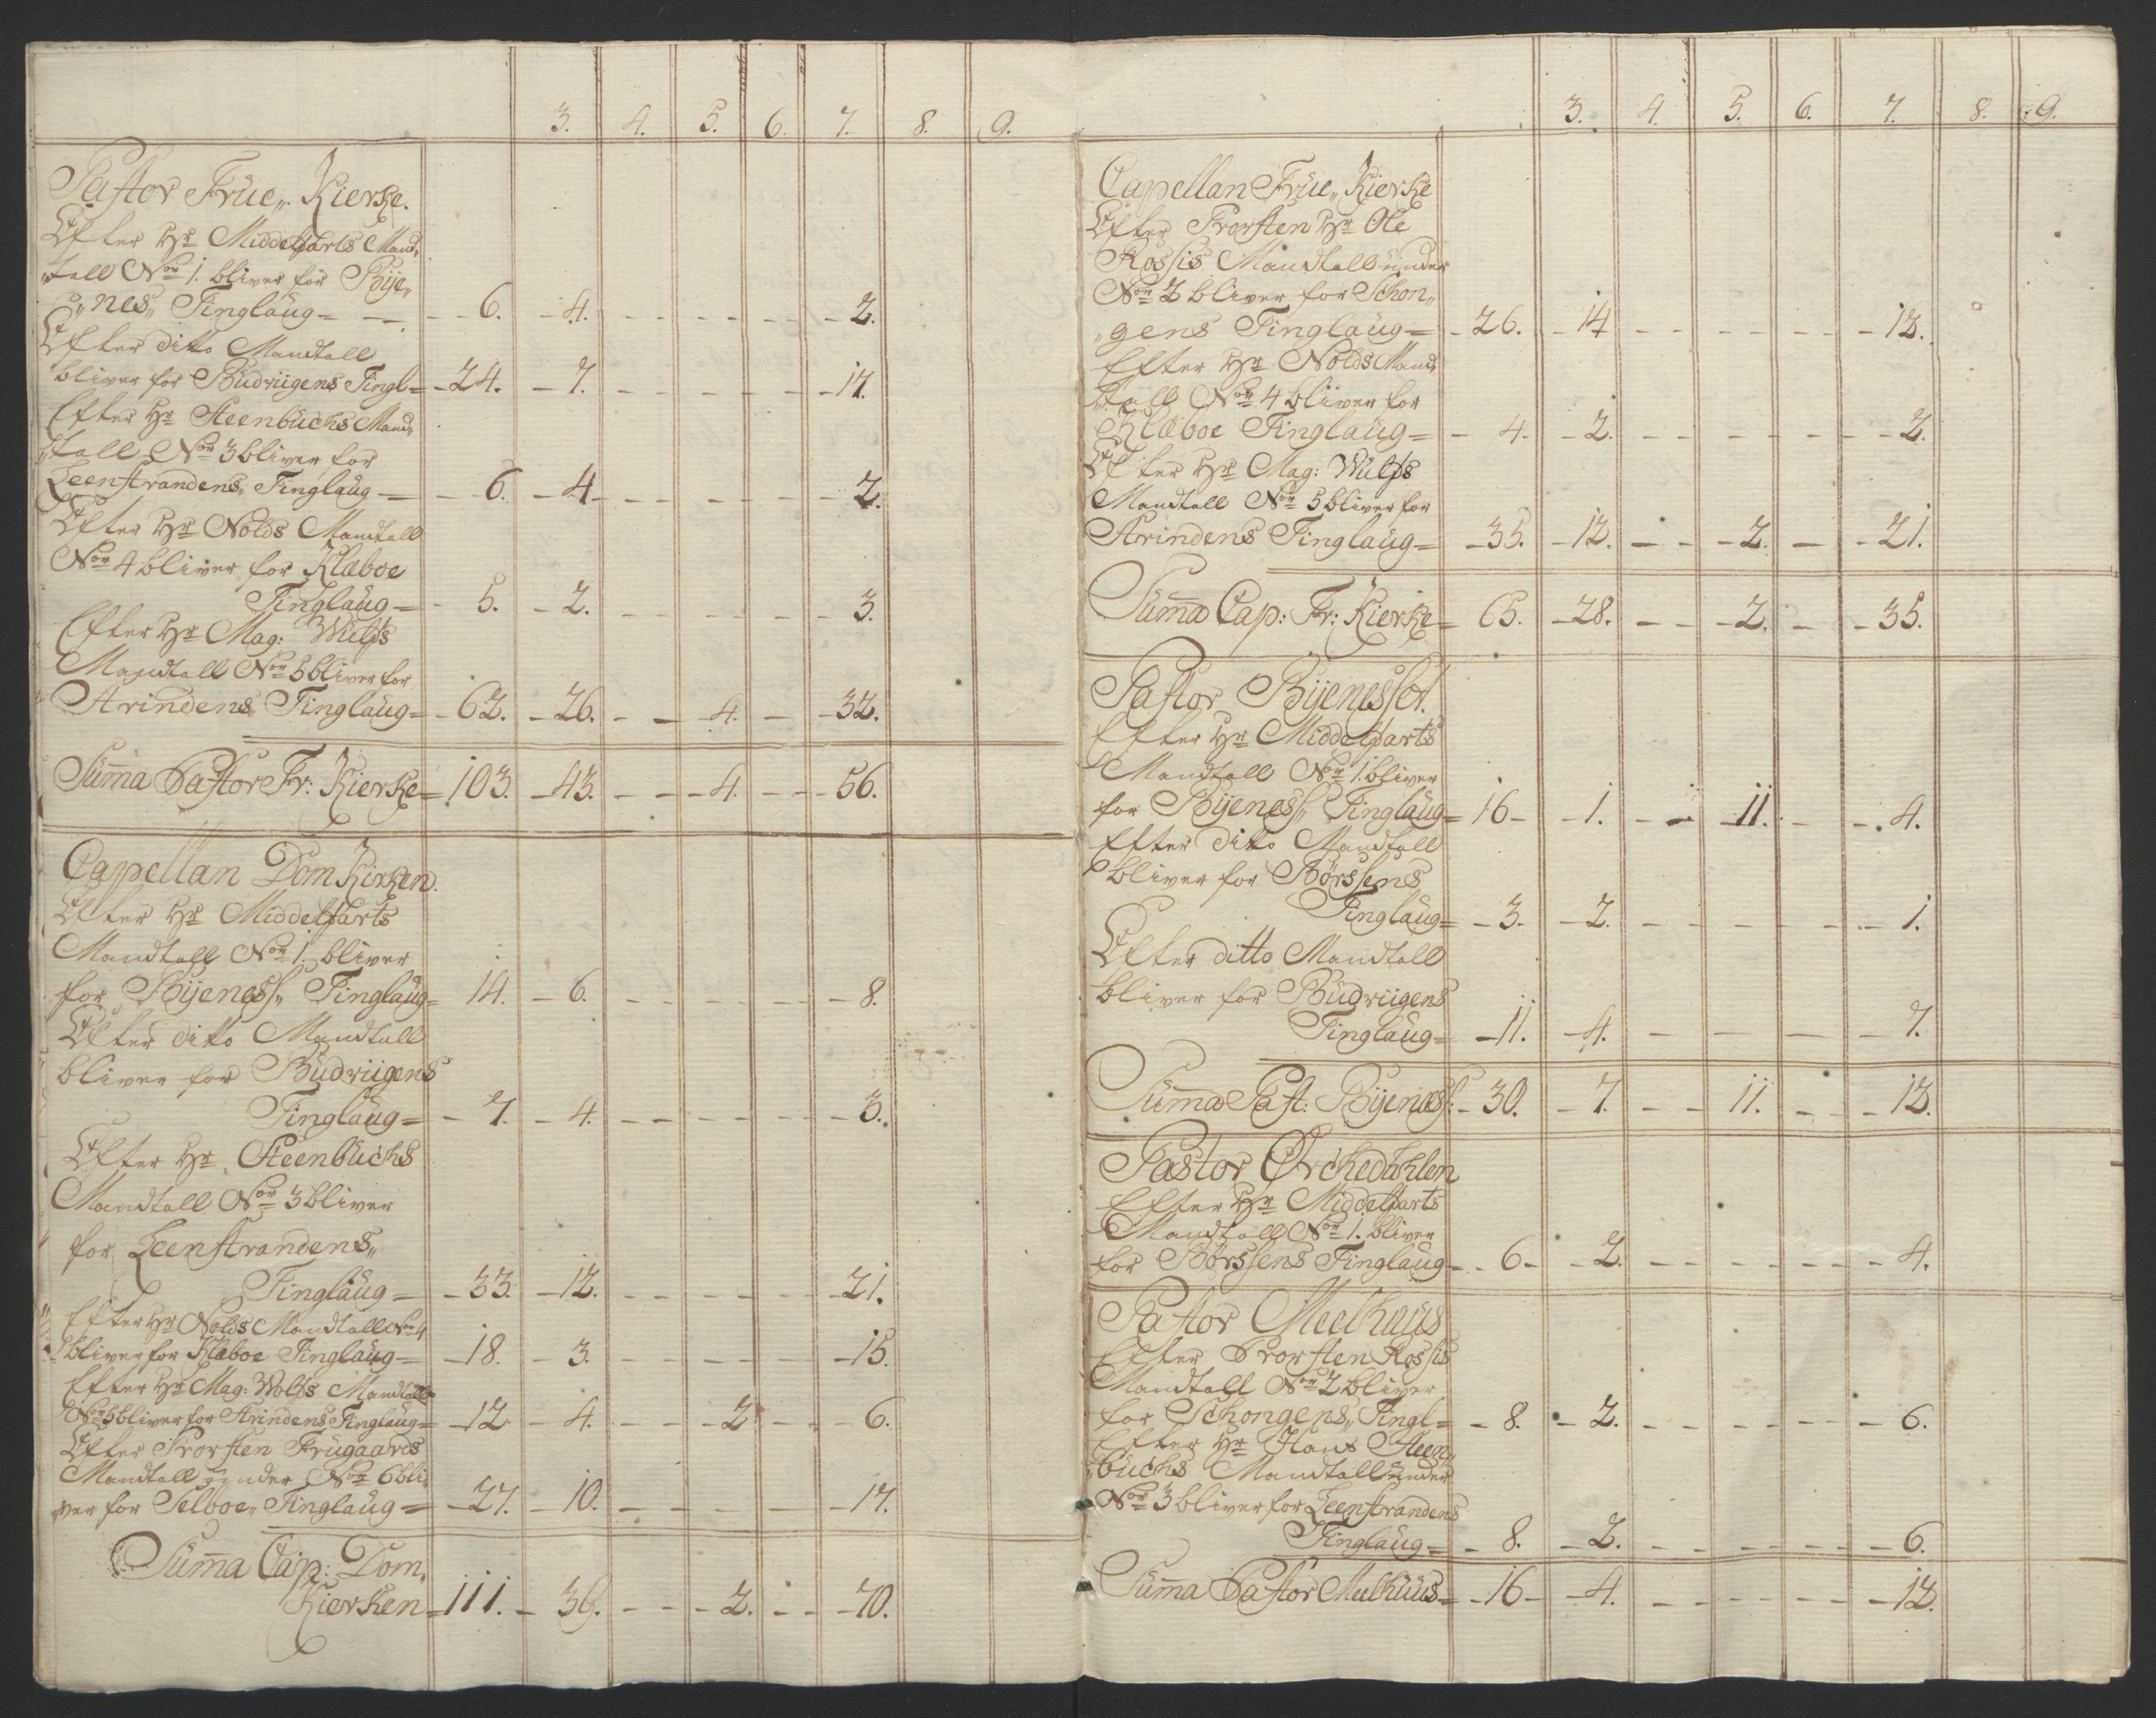 3. 4. 5. 6. 7. 8. 9.
Pastor Frue„ Kierke.
Efter Hr Middelfarts Mand„
„tall Nor 1. bliver for Bije„
„nes„ Tinglaug = — - 6. - 4. - - - - - - 2.
Efter ditto Mandtall
bliver for Budviigens Tingl= - 24. - 7. - - - - - 17.
Efter Hr Steenbuchs Mand„
„tall Nor 3 bliver for
Leenstrandens„ Tinglaug — - 6. - 4. - - - - - - 2.
Efter Hr Nolds Mandtall
Nor 4 bliver for Klæboe
Tinglaug = - 5. - 2. - - - - - - 3.
Efter Hr Mag: Wulfs
Mandtall Nor 5 bliver for
Strindens„ Tinglaug = - 62. - 26. - - 4. - - 32.
Summa Pastor Fr: Kierke = 103. - 43. - - 4. - - 56.
Cappellan Dom Kirken.
Efter Hr Middelfarts
Mandtall Nor 1. bliver
for Bijeness„ Tinglaug = 14. - 6. - - - - - - 8.
Efter ditto Mandtall
bliver for Budviigens
Tinglaug = - 7. - 4. - - - - - - 3.
Efter Hr Steenbuchs
Mandtall Nor 3 bliver
for Leenstrandens„
Tinglaug = - 33. - 12. - - - - - 21.
Efter Hr Nolds Mandtall Nor 4
bliver for Klæboe Tinglaug = - 18. - 3. - - - - - 15.
Efter Hr Mag: Wolfs Mandtall
Nor 5 bliver for Strindens Tinglaug = - 12. - 4. - - 2. - - 6.
Efter Provsten Frugaards
Mandtall under Nor 6 bli„
ver for Selboe„ Tinglaug = - 27. - 10. - - - - - 17.
Summa Cap: Dom„
Kierken = 111. - 39. - - 2. - - 70.
3. 4. 5. 6. 7. 8. 9.
Capellan Frue„ Kierke
Efter Provsten Hr Ole
Rossis Mandtall under
Nor 2 bliver for Schon„
„gens Tinglaug = - 26. - 14 - - - - - 12.
Efter Hr Nolds Mand„
„tall Nor 4 bliver for
Klæboe Tinglaug = - 4. - 2. - - - - - - 2.
Efter Hr Mag: Wulfs
Mandtall Nor 5 bliver for
Strindens Tinglaug = - 35. - 12. - - - 2. - - 21.
Summa Cap: Fr: Kierke = 65. - 28. - - - 2. - - 35.
Pastor Bijenesset.
Efter Hr Middelfarts
Mandtall Nor 1. bliver
for Bijeness„ Tinglaug = 16 - - 1. - - 11. - - 4.
Efter ditto Mandtall
bliver for Børssens
Tinglaug = - 3. - 2. - - - - - - 1.
Efter ditto Mandtall
bliver for Budviigens
Tinglaug = - 11. - 4. - - - - 7.
Summa Past: Bijeness: - 30. - 7. - - 11. - - 12.
Pastor Ørchedahlen
Efter Hr Middelfarts
Mandtall Nor 1. bliver
for Børssens Tinglaug - - 6 - - 2. - - - - - - 4.
Pastor Meelhuus
Efter Provsten Rossis
Mandtall Nor 2 bliver
for Schongens„ Tingl = - 8. - 2. - - - - - - 6.
Efter Hr Hans Steen„
„buchs Mandtall under
Nor 3 bliver for Leenstrandens
Tinglaug = - 8. - 2. - - - - - - 6.
Summa Pastor Meelhuus = - 16 - - 4. - - - - - - 12.